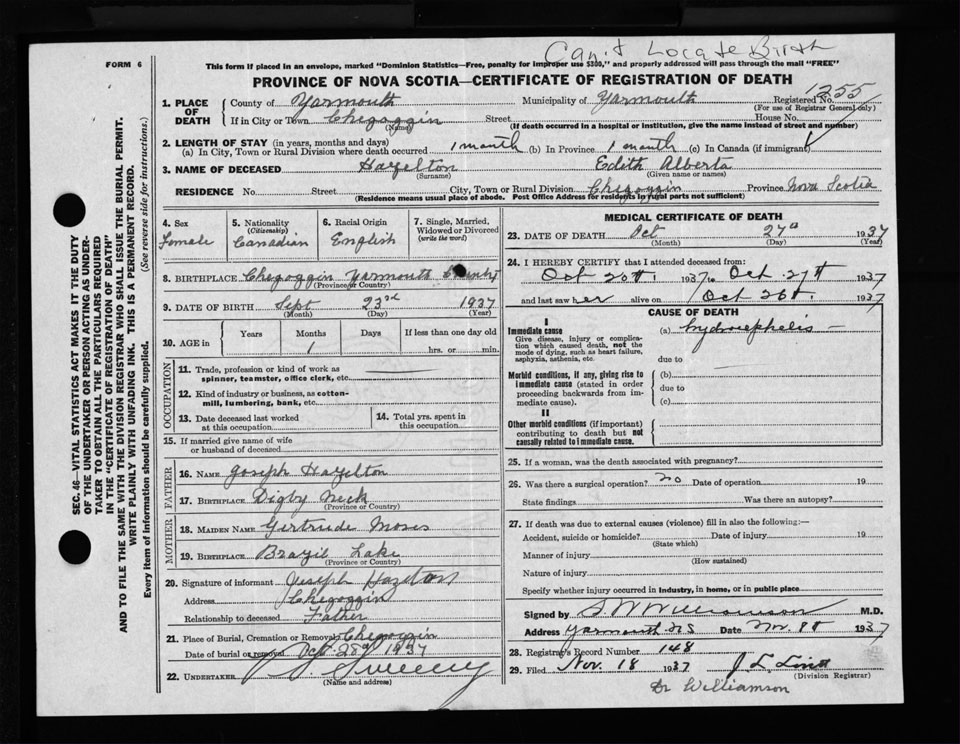 Can't Locate Birth
FORM 6
This form if placed in an envelope, marked "Dominion Statistics—Free, penalty for improper use $300," and properly addressed will pass through the mail "FREE"
PROVINCE OF NOVA SCOTIA—CERTIFICATE OF REGISTRATION OF DEATH
1. PLACE OF DEATH
County of Yarmouth Municipality of Yarmouth Registered No. 1255
(For use of Registrar General only)
If in City or Town Chegoggin Street House No.
(Name) (If death occurred in a hospital or institution, give the name instead of street and number)
2. LENGTH OF STAY (in years, months and days)
(a) In City, Town or Rural Division where death occurred 1 month (b) In Province 1 month (c) In Canada (if immigrant)
3. NAME OF DECEASED Hazelton Edith Alberta
(Surname) (Given name or names)
RESIDENCE No. Street City, Town or Rural Division Chegoggin Province Nova Scotia
(Residence means usual place of abode. Post Office Address for residents in rural parts not sufficient)
4. Sex
Female
5. Nationality
(Citizenship)
Canadian
6. Racial Origin
English
7. Single, Married, Widowed or Divorced
(write the word)
8. BIRTHPLACE Chegoggin Yarmouth County
(Province or Country)
9. DATE OF BIRTH Sept 23rd 1937
(Month) (Day) (Year)
10. AGE in
Years Months Days If less than one day old
1 hrs. or min.
OCCUPATION
11. Trade, profession or kind of work as
spinner, teamster, office clerk, etc.
12. Kind of industry or business, as cotton-
mill, lumbering, bank, etc.
13. Date deceased last worked
at this occupation
14. Total yrs. spent in
this occupation
15. If married give name of wife
or husband of deceased
FATHER
16. NAME Joseph Hazelton
17. BIRTHPLACE Digby Neck
(Province or Country)
MOTHER
18. MAIDEN NAME Gertrude Moses
19. BIRTHPLACE Brazil Lake
(Province or Country)
20. Signature of informant Joseph Hazelton
Address Chegoggin
Relationship to deceased Father
21. Place of Burial, Cremation or Removal Chegoggin
Date of burial or removal Oct 28th 1937
22. UNDERTAKER Sweeny
(Name and address)
MEDICAL CERTIFICATE OF DEATH
23. DATE OF DEATH Oct 27th 1937
(Month) (Day) (Year)
24. I HEREBY CERTIFY that I attended deceased from:
Oct 20th 1937 to Oct 27th 1937
and last saw her alive on Oct 26th 1937
CAUSE OF DEATH
I
Immediate cause (a) hydrocephelis
Give disease, injury or complica-
tion which caused death, not the
mode of dying, such as heart failure,
asphyxia, asthenia, etc.
due to
Morbid conditions, if any, giving rise to
immediate cause (stated in order
proceeding backwards from im-
mediate cause).
(b)
due to
(c)
II
Other morbid conditions (if important)
contributing to death but not
causally related to immediate cause.
25. If a woman, was the death associated with pregnancy?
26. Was there a surgical operation? no Date of operation 19
State findings Was there an autopsy?
27. If death was due to external causes (violence) fill in also the following:—
Accident, suicide or homicide? Date of injury 19
(State which)
Manner of injury
(How sustained)
Nature of injury
Specify whether injury occurred in industry, in home, or in public place
Signed by S W Williamson M.D.
Address Yarmouth NS Date Nov. 8th 1937
28. Registrar's Record Number 148
29. Filed Nov. 18 1937
(Division Registrar)
Dr Williamson
SEC. 46—VITAL STATISTICS ACT MAKES IT THE DUTY
OF THE UNDERTAKER OR PERSON ACTING AS UNDER-
TAKER TO OBTAIN ALL THE PARTICULARS REQUIRED
IN THE "CERTIFICATE OF REGISTRATION OF DEATH"
AND TO FILE THE SAME WITH THE DIVISION REGISTRAR WHO SHALL ISSUE THE BURIAL PERMIT.
WRITE PLAINLY WITH UNFADING INK. THIS IS A PERMANENT RECORD.
Every item of information should be carefully supplied. (See reverse side for instructions.)